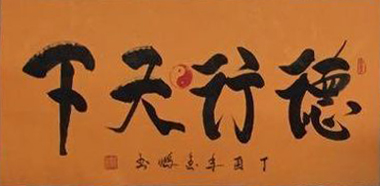 德行天下
丁酉年